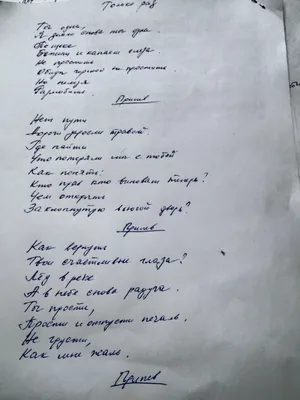 Только раз
Ты одна,
Я давно снова одна.
По щеке
Бежит и капает слеза.
Не простила
Обиды горькой не простила
Но нельзя
Разлюбить.
Припев
Нет пути
Дороги заросли травой
Где найти
Что потеряли мы с тобой
Как понять:
Кто прав кто виноват теперь?
Чем открыть
Захлопнутую вьюгой дверь?
Припев
Как вернуть
Твои счастливые глаза?
Лёд в реке
А в небе снова радуга.
Ты прости,
Прости и отпусти печаль.
Не грусти,
Как мне жаль.
Припев